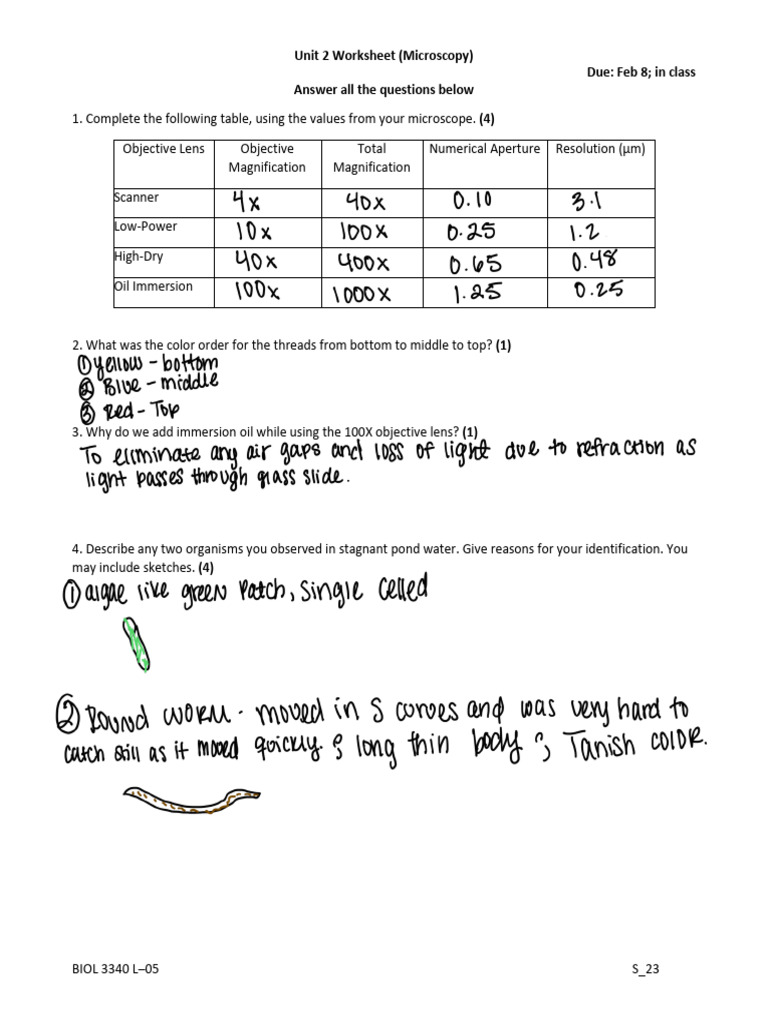 Unit 2 Worksheet (Microscopy)
Due: Feb 8; in class
Answer all the questions below
1. Complete the following table, using the values from your microscope. (4)
Objective Lens Objective Magnification Total Magnification Numerical Aperture Resolution (µm)
Scanner 4x 40x 0.10 3.1
Low-Power 10x 100x 0.25 1.2
High-Dry 40x 400x 0.65 0.48
Oil Immersion 100x 1000x 1.25 0.25
2. What was the color order for the threads from bottom to middle to top? (1)
① yellow - bottom
② Blue - middle
③ Red - Top
3. Why do we add immersion oil while using the 100X objective lens? (1)
To eliminate any air gaps and loss of light due to refraction as
light passes through glass slide.
4. Describe any two organisms you observed in stagnant pond water. Give reasons for your identification. You
may include sketches. (4)
① algae like green patch, single celled
② Round worm - moved in S curves and was very hard to
catch still as it moved quickly. & long thin body & Tanish color.
BIOL 3340 L–05 S_23